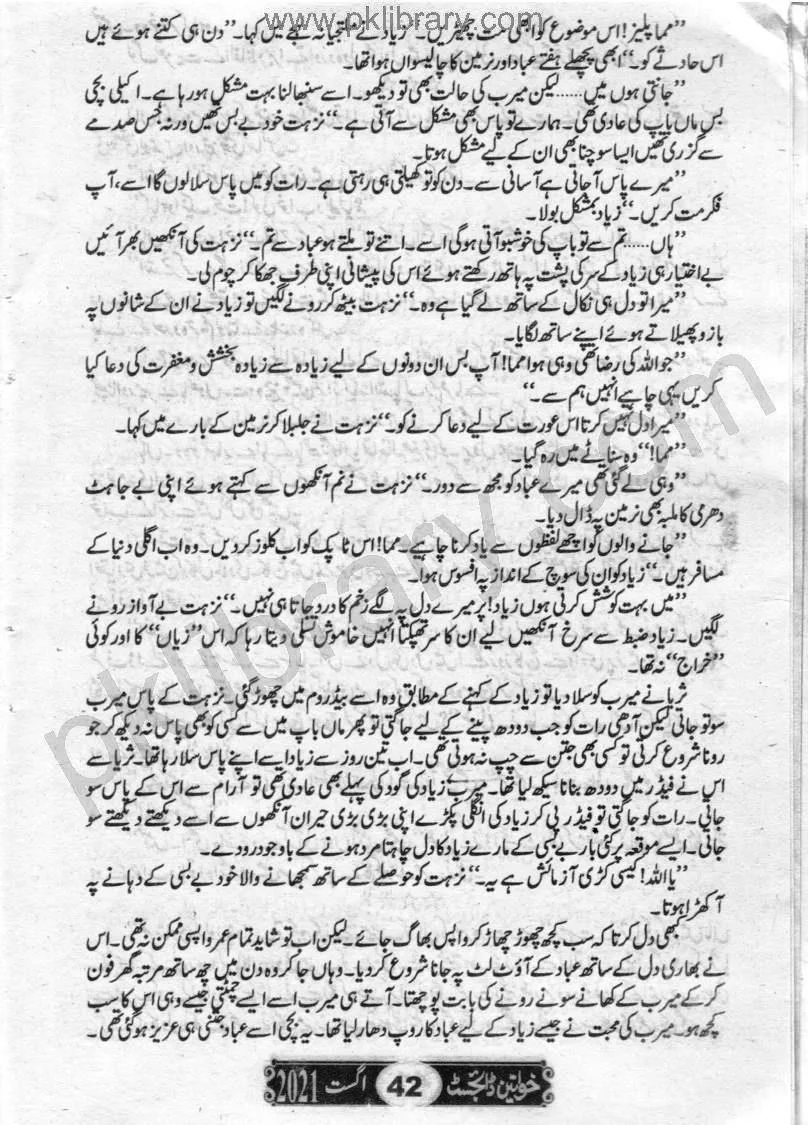 www.pklibrary.com
”مما پلیز! اس موضوع کو ابھی مت چھیڑیں۔“ زیاد نے ملتجیانہ لہجے میں کہا۔ ”دن ہی کتنے ہوئے ہیں
اس حادثے کو۔“ ابھی پچھلے ہفتے عباد اور نرمین کا چالیسواں ہوا تھا۔
”جانتی ہوں میں...... لیکن میرب کی حالت بھی تو دیکھو۔ اسے سنبھالنا بہت مشکل ہو رہا ہے۔ اکیلی بچی
بس ماں باپ کی عادی تھی۔ ہمارے تو پاس بھی مشکل سے آتی ہے۔“ نزہت خود بے بس تھیں ورنہ جس صدمے
سے گزری تھیں ایسا سوچنا بھی ان کے لیے مشکل ہوتا۔
”میرے پاس آ جاتی ہے آسانی سے۔ دن کو تو کھیلتی ہی رہتی ہے۔ رات کو میں پاس سلا لوں گا اسے، آپ
فکر مت کریں۔“ زیاد بمشکل بولا۔
”ہاں...... تم سے تو باپ کی خوشبو آتی ہوگی اسے۔ اتنے تو ملتے ہو عباد سے تم۔“ نزہت کی آنکھیں بھر آئیں
بے اختیار ہی زیاد کے سر کی پشت پہ ہاتھ رکھتے ہوئے اس کی پیشانی اپنی طرف جھکا کر چوم لی۔
”میرا تو دل ہی نکال کے ساتھ لے گیا ہے وہ۔“ نزہت بیٹھ کر رونے لگیں تو زیاد نے ان کے شانوں پہ
بازو پھیلاتے ہوئے اپنے ساتھ لگایا۔
”جو اللہ کی رضا تھی وہی ہوا مما! آپ بس ان دونوں کے لیے زیادہ سے زیادہ بخشش و مغفرت کی دعا کیا
کریں یہی چاہیے انہیں ہم سے۔“
”میرا دل نہیں کرتا اس عورت کے لیے دعا کرنے کو۔“ نزہت نے جلبلا کر نرمین کے بارے میں کہا۔
”مما!“ وہ سناٹے میں رہ گیا۔
”وہی لے گئی تھی میرے عباد کو مجھ سے دور۔“ نزہت نے نم آنکھوں سے کہتے ہوئے اپنی بے جا ہٹ
دھرمی کا ملبہ بھی نرمین پہ ڈال دیا۔
”جانے والوں کو اچھے لفظوں سے یاد کرنا چاہیے۔ مما! اس ٹاپک کو اب کلوز کر دیں۔ وہ اب اگلی دنیا کے
مسافر ہیں۔“ زیاد کو ان کی سوچ کے انداز پہ افسوس ہوا۔
”میں بہت کوشش کرتی ہوں زیاد! پر میرے دل پہ لگے زخم کا درد جاتا ہی نہیں۔“ نزہت بے آواز رونے
لگیں۔ زیاد ضبط سے سرخ آنکھیں لیے ان کا سر تھپکتا انہیں خاموش تسلی دیتا رہا کہ اس ”زیاں“ کا اور کوئی
”خراج“ نہ تھا۔
ثریا نے میرب کو سلا دیا تو زیاد کے کہنے کے مطابق وہ اسے بیڈ روم میں چھوڑ گئی۔ نزہت کے پاس میرب
سو تو جاتی لیکن آدھی رات کو جب دودھ پینے کے لیے جاگتی تو پھر ماں باپ میں سے کسی کو بھی پاس نہ دیکھ کر جو
رونا شروع کرتی تو کسی بھی جتن سے چپ نہ ہوتی تھی۔ اب تین روز سے زیاد اسے اپنے پاس سلا رہا تھا۔ ثریا سے
اس نے فیڈر میں دودھ بنانا سیکھ لیا تھا۔ میرب زیاد کی گود کی پہلے بھی عادی تھی تو آرام سے اس کے پاس سو
جاتی۔ رات کو جاگتی تو فیڈر پی کر زیاد کی انگلی پکڑے اپنی بڑی بڑی حیران آنکھوں سے اسے دیکھتے دیکھتے سو
جاتی۔ ایسے موقعہ پر کئی بار بے بسی کے مارے زیاد کا دل چاہتا مرد ہونے کے باوجود رو دے۔
”یا اللہ! کیسی کڑی آزمائش ہے یہ۔“ نزہت کو حوصلے کے ساتھ سمجھانے والا خود بے بسی کے دہانے پہ
آ کھڑا ہوتا۔
کبھی دل کرتا کہ سب کچھ چھوڑ چھاڑ کر واپس بھاگ جائے۔ لیکن اب تو شاید تمام عمر واپسی ممکن نہ تھی۔ اس
نے بھاری دل کے ساتھ عباد کے آؤٹ لٹ پہ جانا شروع کر دیا۔ وہاں جا کر وہ دن میں چھ سات مرتبہ گھر فون
کر کے میرب کے کھانے سونے رونے کی بابت پوچھتا۔ آتے ہی میرب اسے ایسے چمٹتی جیسے وہی اس کا سب
کچھ ہو۔ میرب کی محبت نے جیسے زیاد کے لیے عباد کا روپ دھار لیا تھا۔ یہ بچی اسے عباد جتنی ہی عزیز ہو گئی تھی۔
خواتین ڈائجسٹ 42 اگست 2021
pklibrary.com